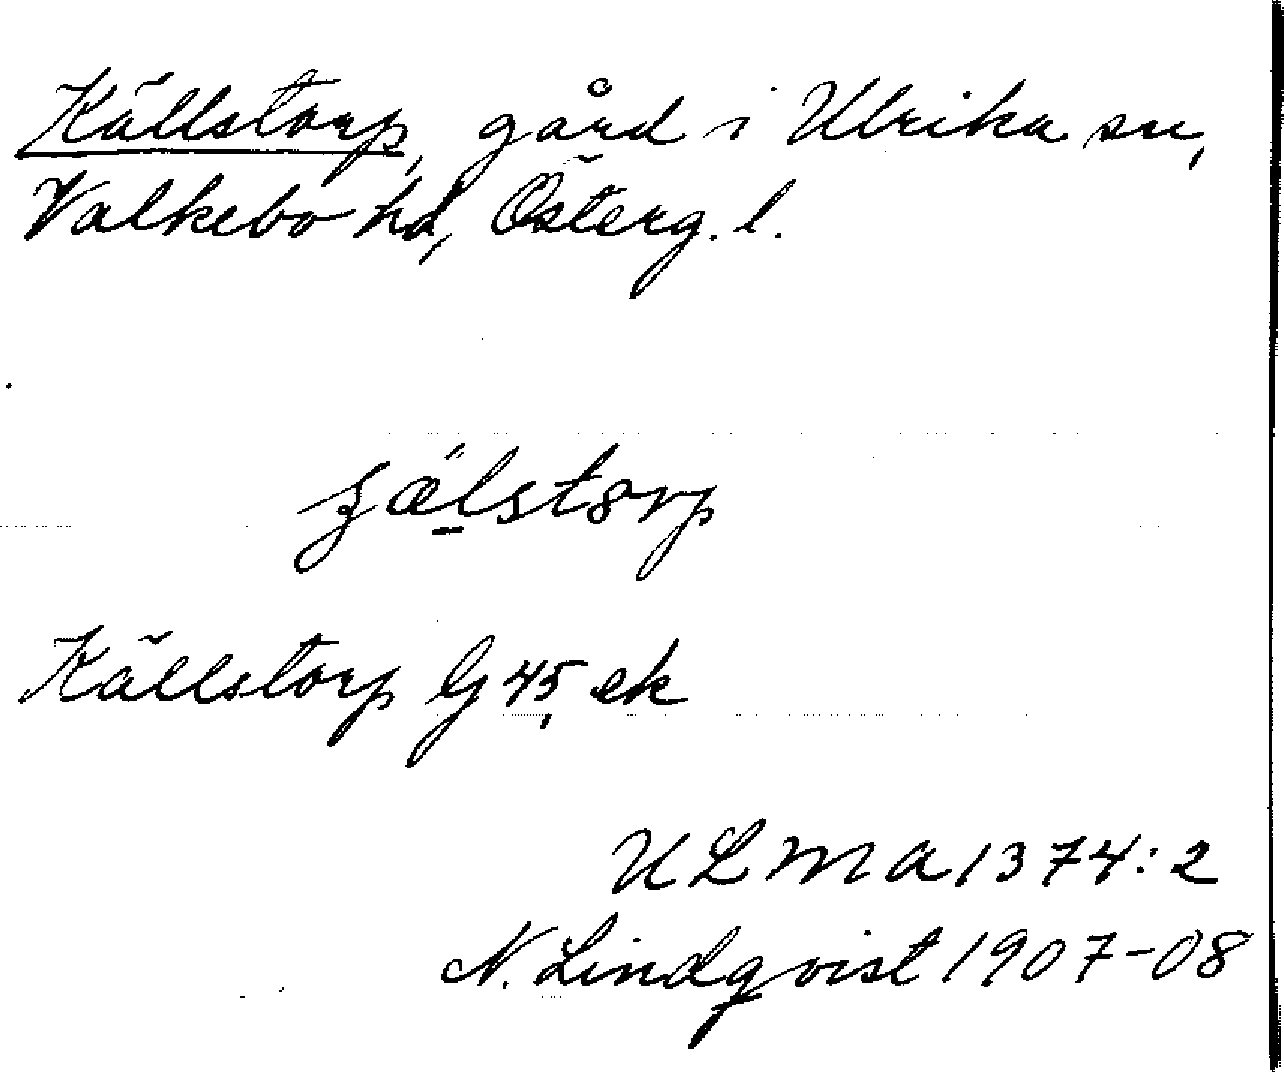 Källstorp, gård i Ulrika sn,
Valkebo hd, Österg. l.
Källstorp G 45 ek
ULMA 1374:2
N. Lindqvist 1907-08